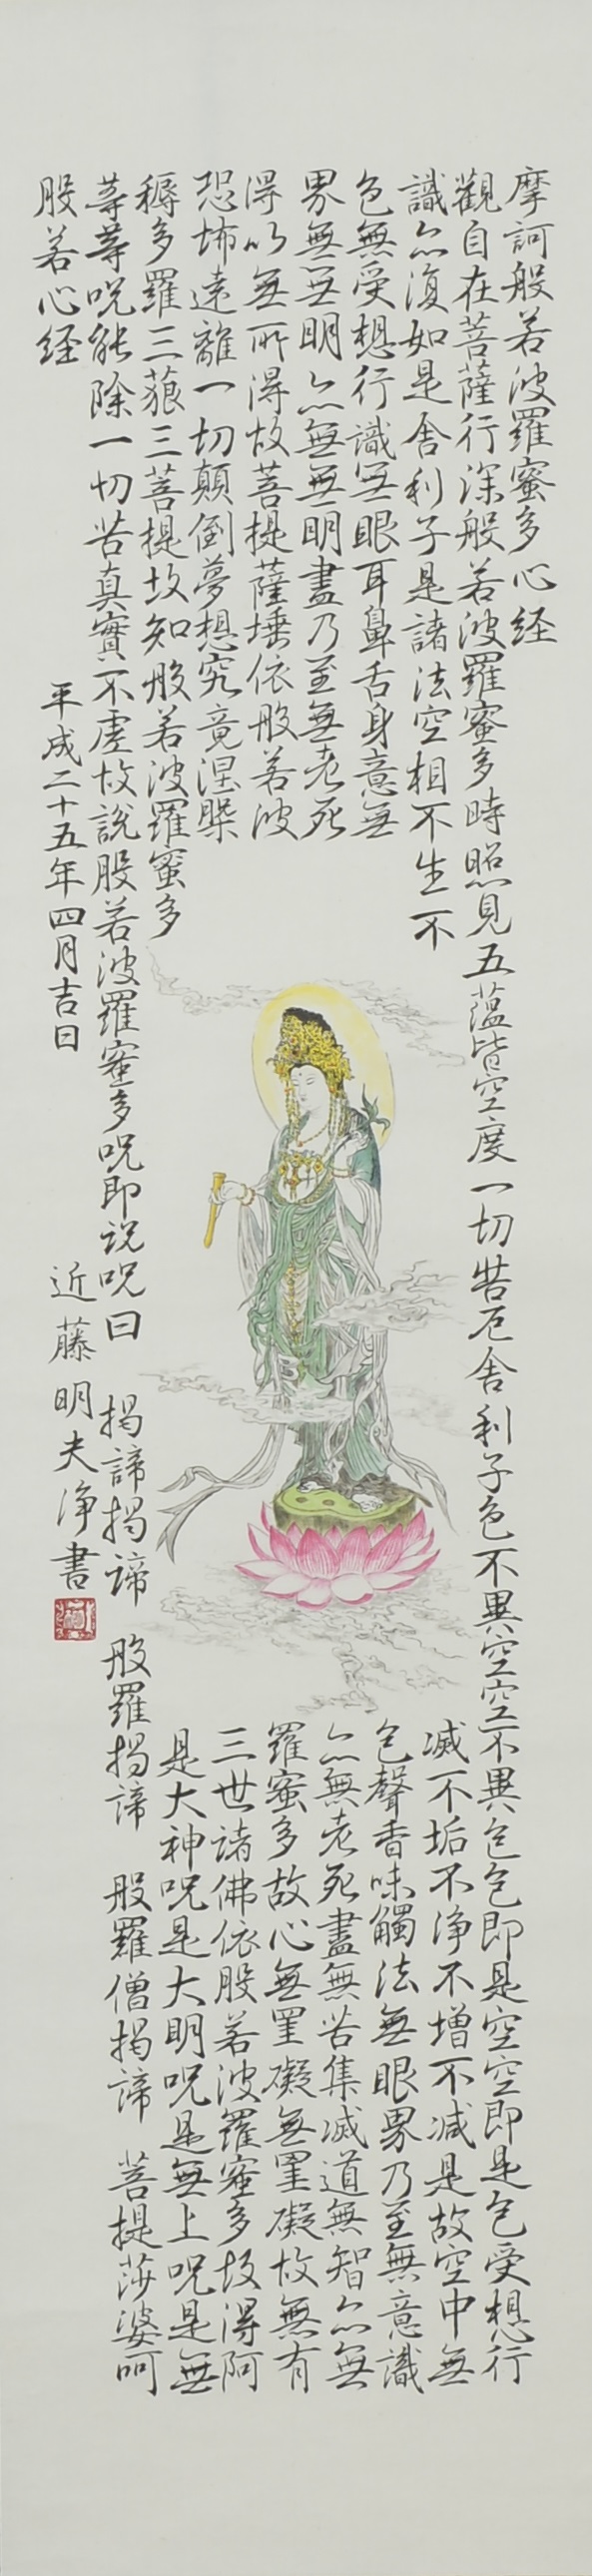 摩訶般若波羅蜜多心経
觀自在菩薩行深般若波羅蜜多時照見五蘊皆空度一切苦厄舍利子色不異空空不異色色即是空空即是色受想行
識亦復如是舍利子是諸法空相不生不滅不垢不浄不増不減是故空中無
色無受想行識無眼耳鼻舌身意無色聲香味觸法無眼界乃至無意識
界無無明亦無無明盡乃至無老死亦無老死盡無苦集滅道無智亦無
得以無所得故菩提薩埵依般若波羅蜜多故心無罣礙無罣礙故無有
恐怖遠離一切顛倒夢想究竟涅槃三世諸佛依般若波羅蜜多故得阿
耨多羅三藐三菩提故知般若波羅蜜多是大神呪是大明呪是無上呪是無
等等呪能除一切苦真實不虚故説般若波羅蜜多呪即説呪曰 揭諦揭諦 般羅揭諦 般羅僧揭諦 菩提莎婆呵
般若心経
平成二十五年四月吉日 近藤明夫浄書